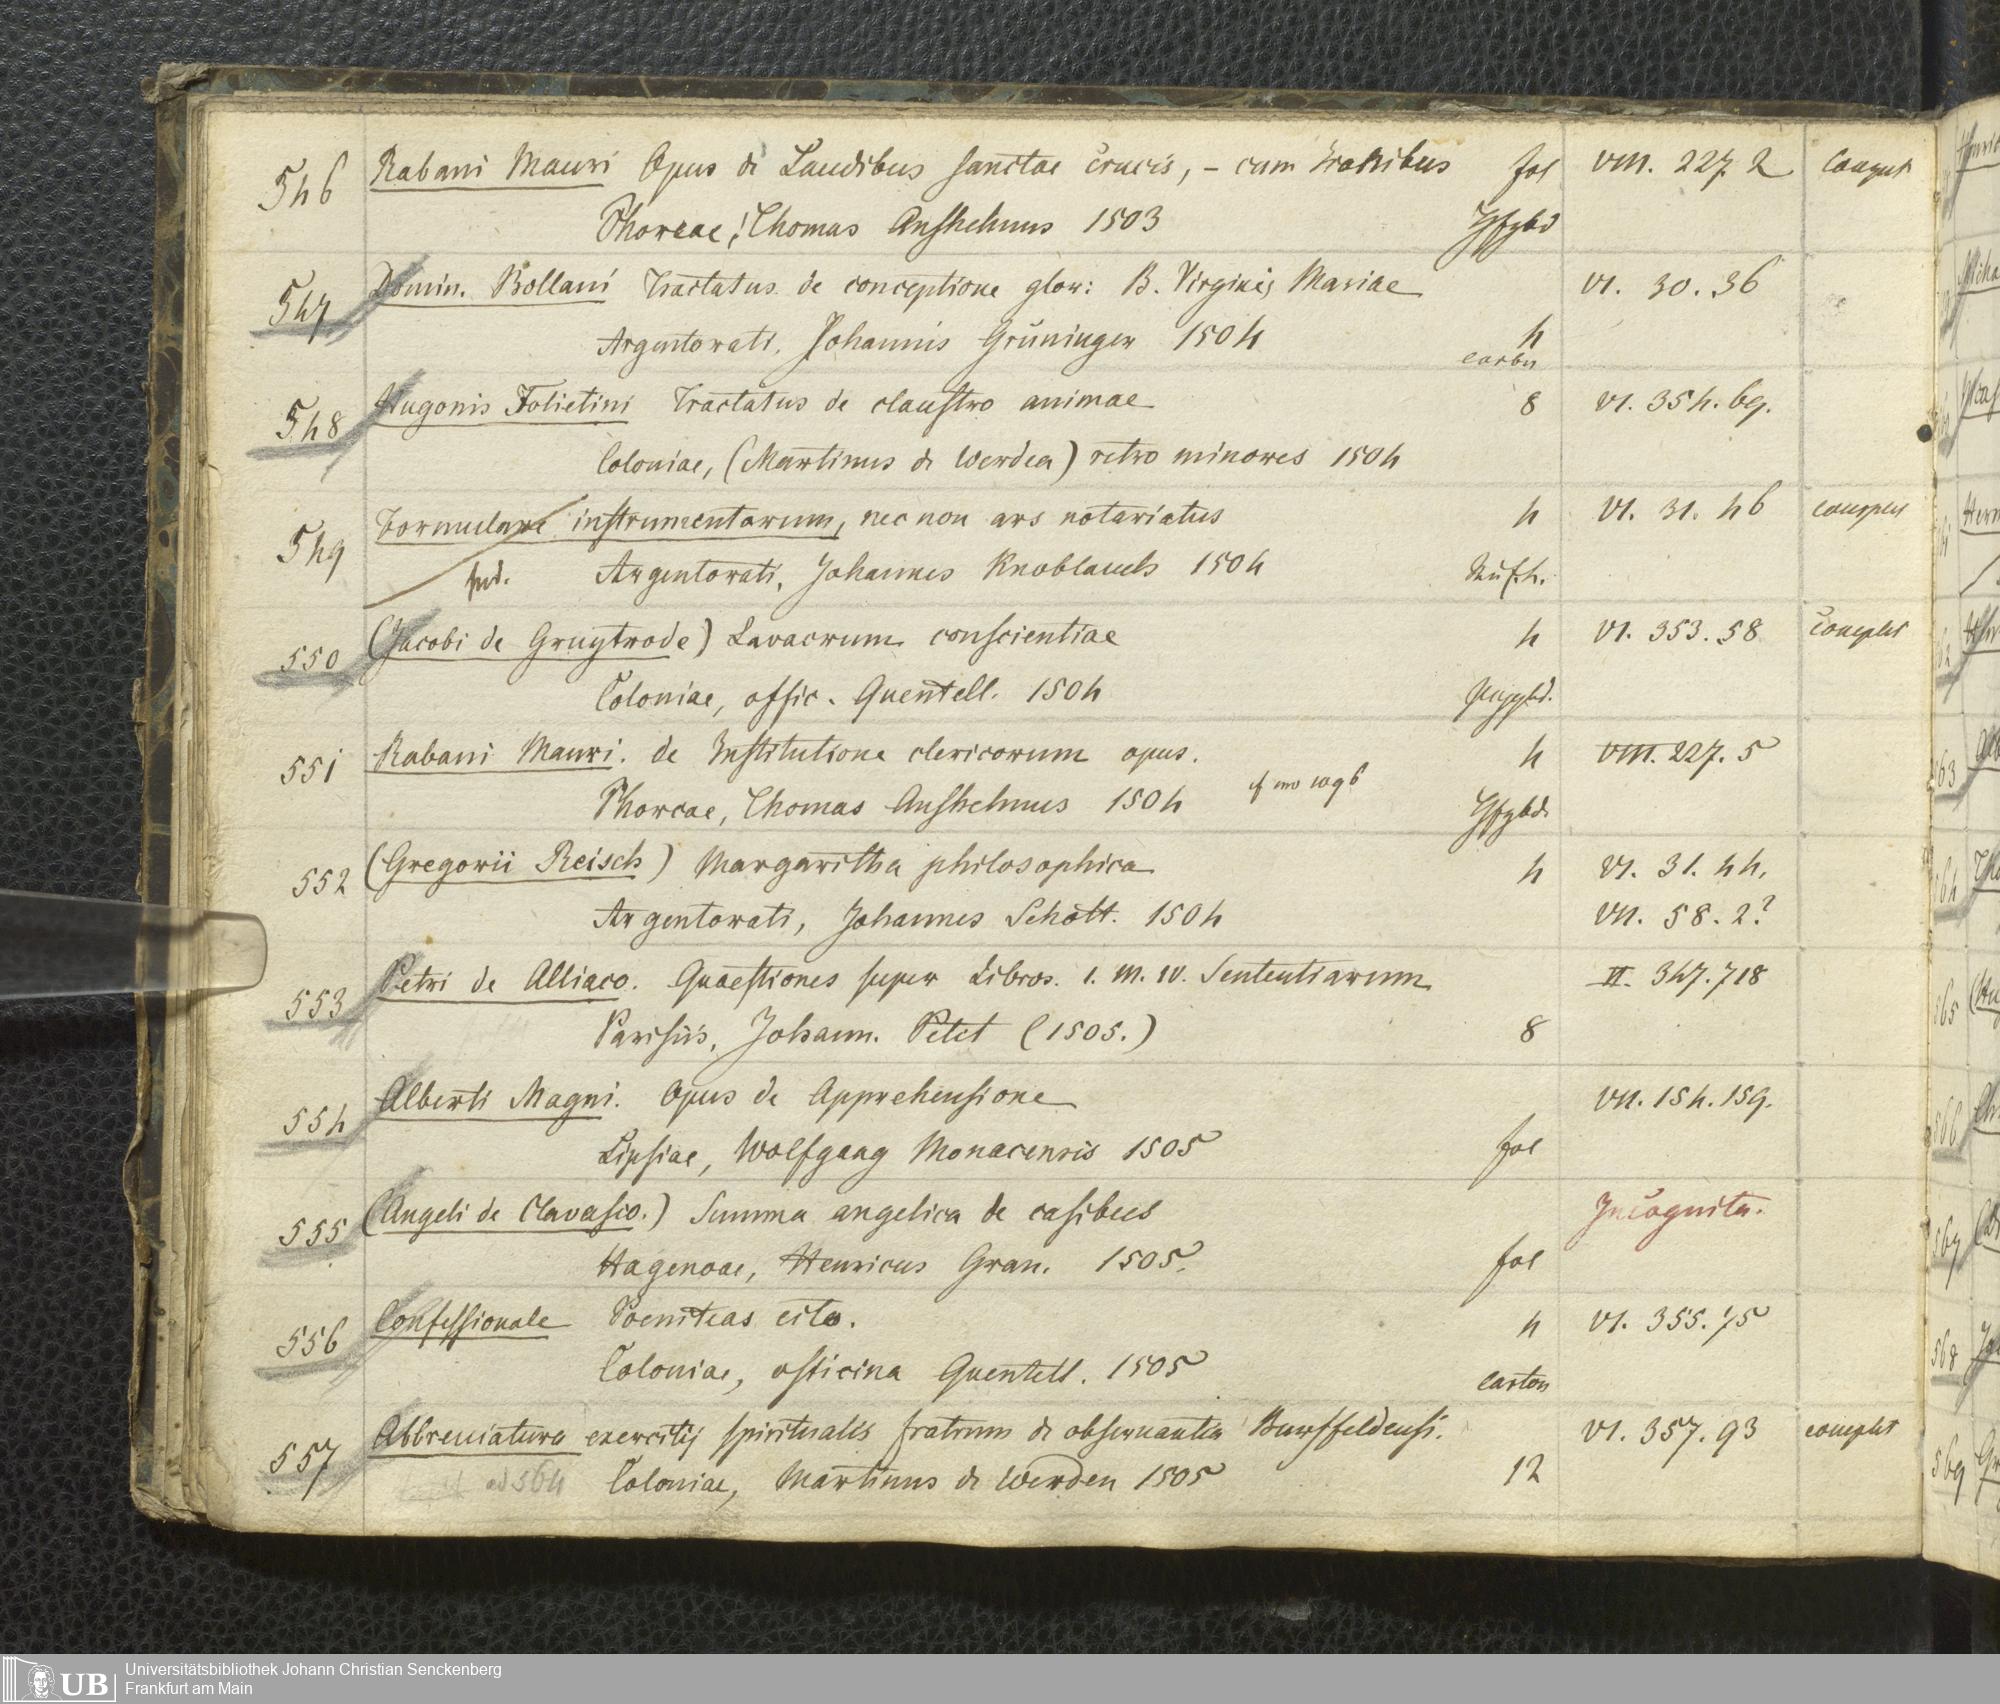 546 Rabani Mauri Opus de Laudibus sanctae Crucis, – cum Iconibus fol VIII. 227. 2 complet
Phorcae, Thomas Anshelmus 1503 Hfzbd
547 Domin. Bollani Tractatus de conceptione glor: B. Virginis Mariae VI. 30. 36
Argentorati, Johannis Grüninger 1504 4
carton
548 Hugonis Folietini Tractatus de claustro animae 8 VI. 354. 69.
Coloniae, (Martinus de Werdea) retro minores 1504
549 Formulare instrumentorum, nec non ars notariatus 4 VI. 31. 46 complet
Argentorati, Johannes Knoblauch 1504
550 (Jacobi de Gruytrode) Lavacrum conscientiae 4 VI. 353. 58 complet
Coloniae, offic. Quentell. 1504
551 Rabani Mauri. de Institutione clericorum opus. 4 VIII. 227. 5
Phorcae, Thomas Anshelmus 1504 Hfzbd.
552 (Gregorii Reisch) Margaritha philosophica 4 VI. 31. 44.
Argentorati, Johannes Schott. 1504 VII. 58. 2?
553 Petri de Alliaco. Quaestiones super Libros. I. III. IV. Sententiarum VI. 347. 718
Parisiis, Johann. Petet (1505.) 8
554 Alberti Magni. Opus de Apprehensione VII. 154. 159.
Lipsiae, Wolfgang Monacensis 1505 fol
555 (Angeli de Clavasio.) Summa angelica de casibus Incognita.
Hagenoae, Henricus Gran. 1505. fol
556 Confessionale Poeniteas cito. 4 VI. 355. 75
Coloniae, officina Quentell. 1505 carton
557 Abbreuiatura exercitij spiritualis fratrum de obseruantia Bursfeldensi. VI. 357. 93 complet
ad 564 Coloniae, Martinus de Werden 1505 12
UB Universitätsbibliothek Johann Christian Senckenberg
Frankfurt am Main